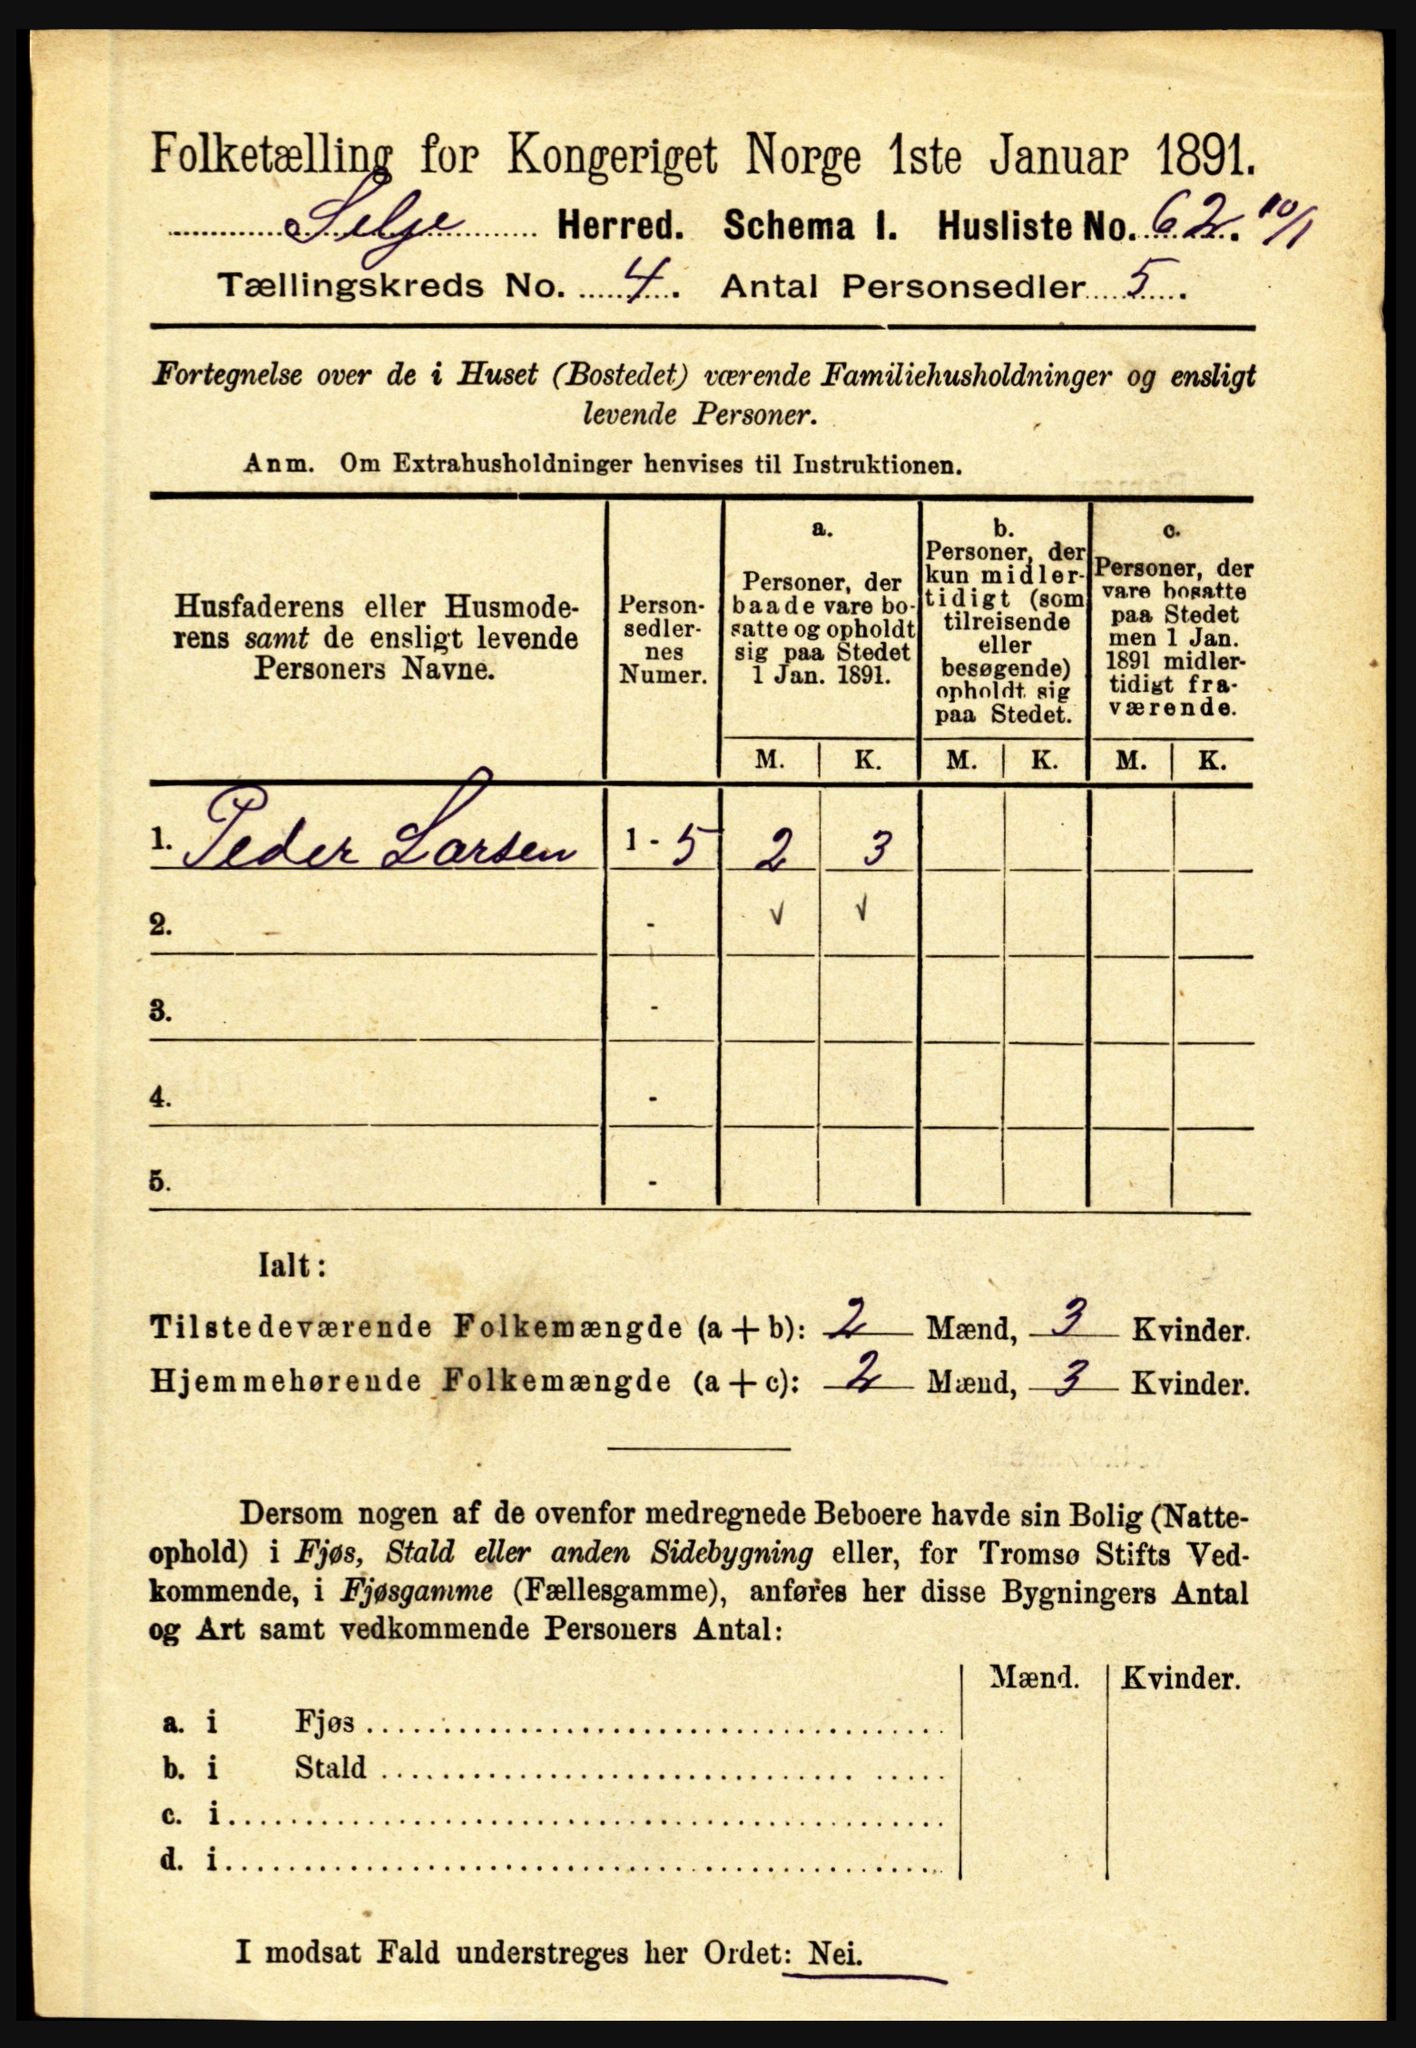 Folketælling for Kongeriget Norge 1ste Januar 1891.
Selje Herred. Schema I. Husliste No. 62. 10/1
Tællingskreds No. 4. Antal Personsedler 5.
Fortegnelse over de i Huset (Bostedet) værende Familiehusholdninger og ensligt
levende Personer.
Anm. Om Extrahusholdninger henvises til Instruktionen.
Husfaderens eller Husmode-
rens samt de ensligt levende
Personers Navne.
Person-
sedler-
nes
Numer.
a.
Personer, der
baade vare bo-
satte og opholdt
sig paa Stedet
1 Jan. 1891.
b.
Personer, der
kun midler-
tidigt (som
tilreisende
eller
besøgende)
opholdt sig
paa Stedet.
c.
Personer, der
vare bosatte
paa Stedet
men 1 Jan.
1891 midler-
tidigt fra-
værende.
M. K. M. K. M. K.
1. Peder Larsen 1 - 5 2 3
2. - √ √
3. -
4. -
5. -
Ialt:
Tilstedeværende Folkemængde (a + b): 2 Mænd, 3 Kvinder.
Hjemmehørende Folkemængde (a + c): 2 Mænd, 3 Kvinder.
Dersom nogen af de ovenfor medregnede Beboere havde sin Bolig (Natte-
ophold) i Fjøs, Stald eller anden Sidebygning eller, for Tromsø Stifts Ved-
kommende, i Fjøsgamme (Fællesgamme), anføres her disse Bygningers Antal
og Art samt vedkommende Personers Antal:
Mænd. Kvinder.
a. i Fjøs
b. i Stald
c. i
d. i
I modsat Fald understreges her Ordet: Nei.